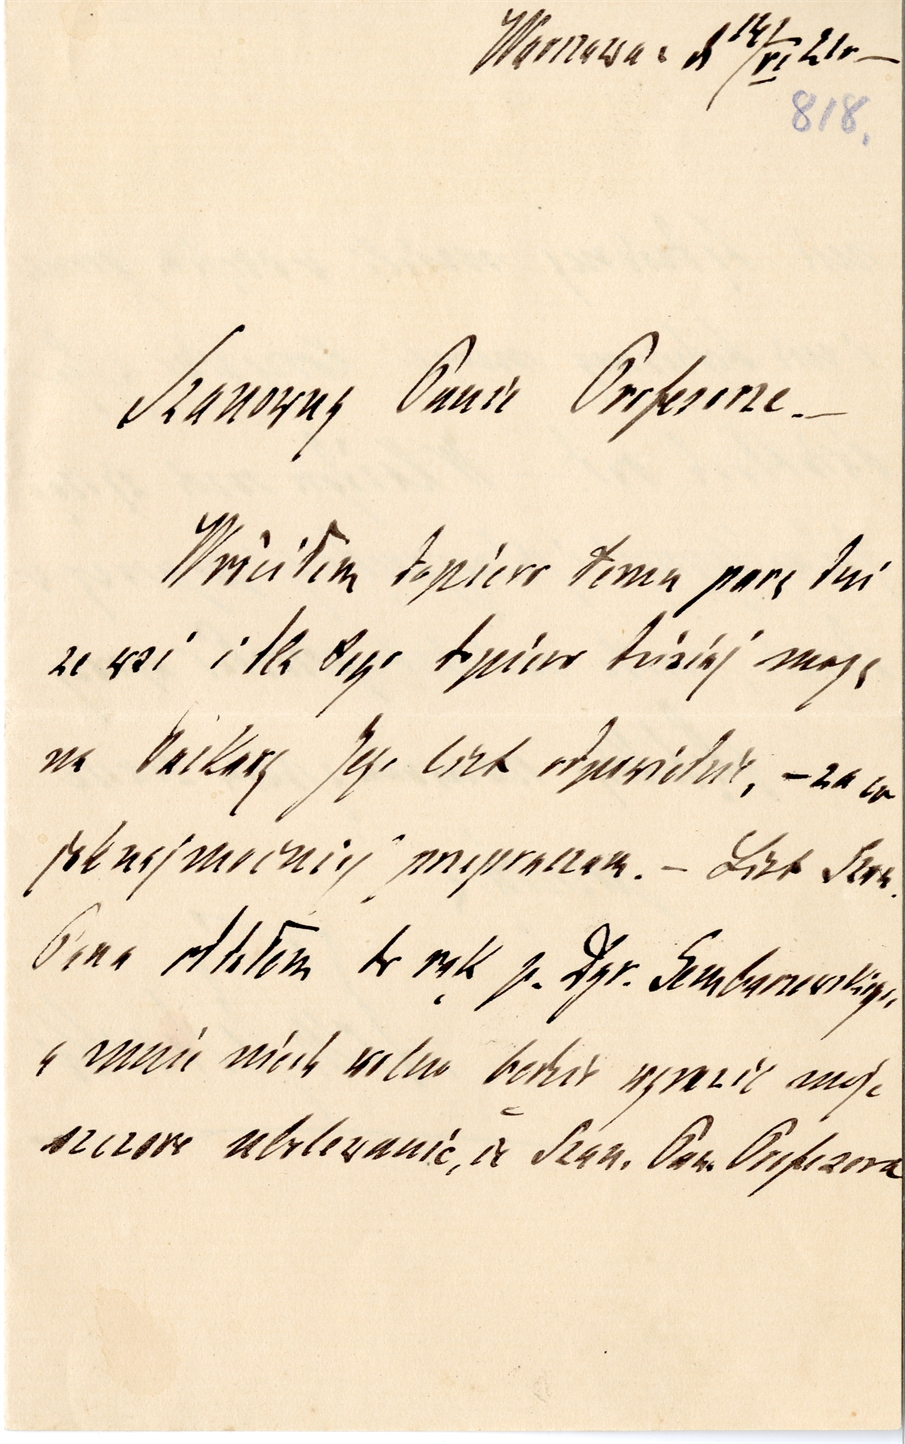 Warszawa d 14/VI 21r —
818.
Szanowny Panie Profesorze. —
Wróciłem dopiero temu parę dni
ze wsi i dla tego dopiero dzisiaj mogę
na łaskawy Jego list odpowiedzieć, — za co
jaknajmocniej przepraszam. — List Szan.
Pana oddałem do rąk p. Dyr.
a mnie niech wolno będzie wyrazić moje
szczere ubolewanie, że Szan. Pan Profesora